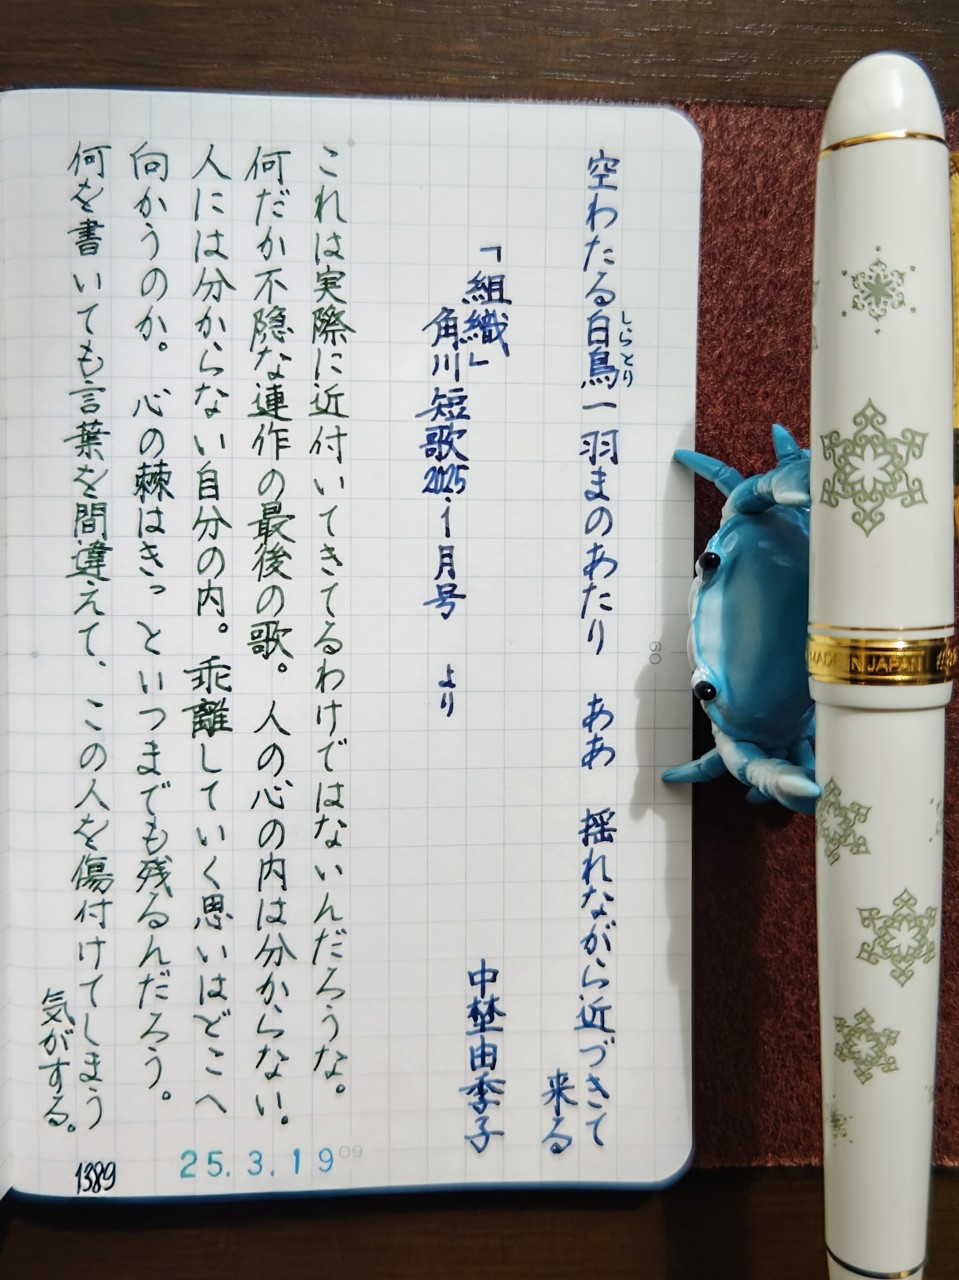 空わたる白鳥一羽まのあたり　ああ　揺れながら近づきて
しらとり
来る
「組織」
角川短歌2025.1月号　より
中埜由季子
これは実際に近付いてきてるわけではないんだろうな。
何だか不隠な連作の最後の歌。人の心の内は分からない。
人には分からない自分の内。乖離していく思いはどこへ
向かうのか。心の棘はきっといつまでも残るんだろう。
何を書いても言葉を間違えて、この人を傷付けてしまう
気がする。
25.3.19
1389
60
MADE IN JAPAN